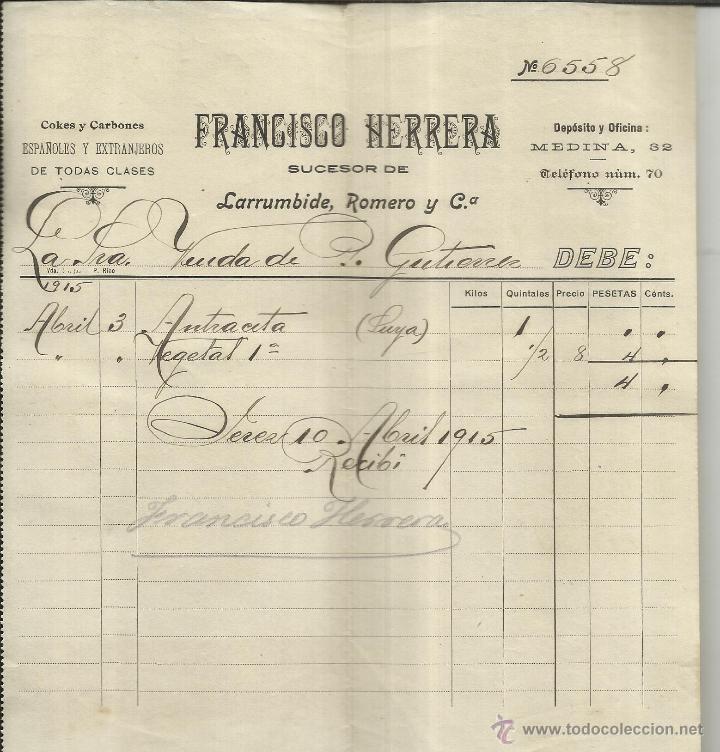 Nº 6558
Cokes y Carbones
ESPAÑOLES Y EXTRANJEROS
DE TODAS CLASES
FRANCISCO HERRERA
SUCESOR DE
Larrumbide, Romero y C.ª
Depósito y Oficina:
MEDINA, 32
Teléfono núm. 70
La Sra. Viuda de P. Gutierrez DEBE:
P. Rico
1915
Kilos Quintales Precio PESETAS Cénts.
Abril 3 Antracita (Suya) 1 " "
" " Vegetal 1ª 1/2 8 4 "
4 "
Jerez 10 Abril 1915
Recibí
Francisco Herrera
todocoleccion
www.todocoleccion.net